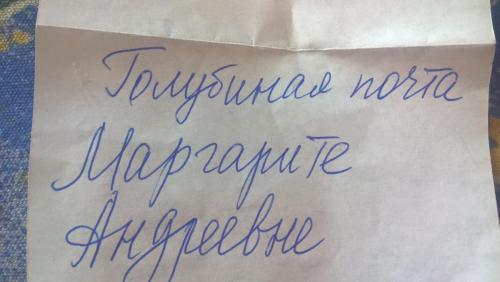 Голубиная почта
Маргарите
Андреевне